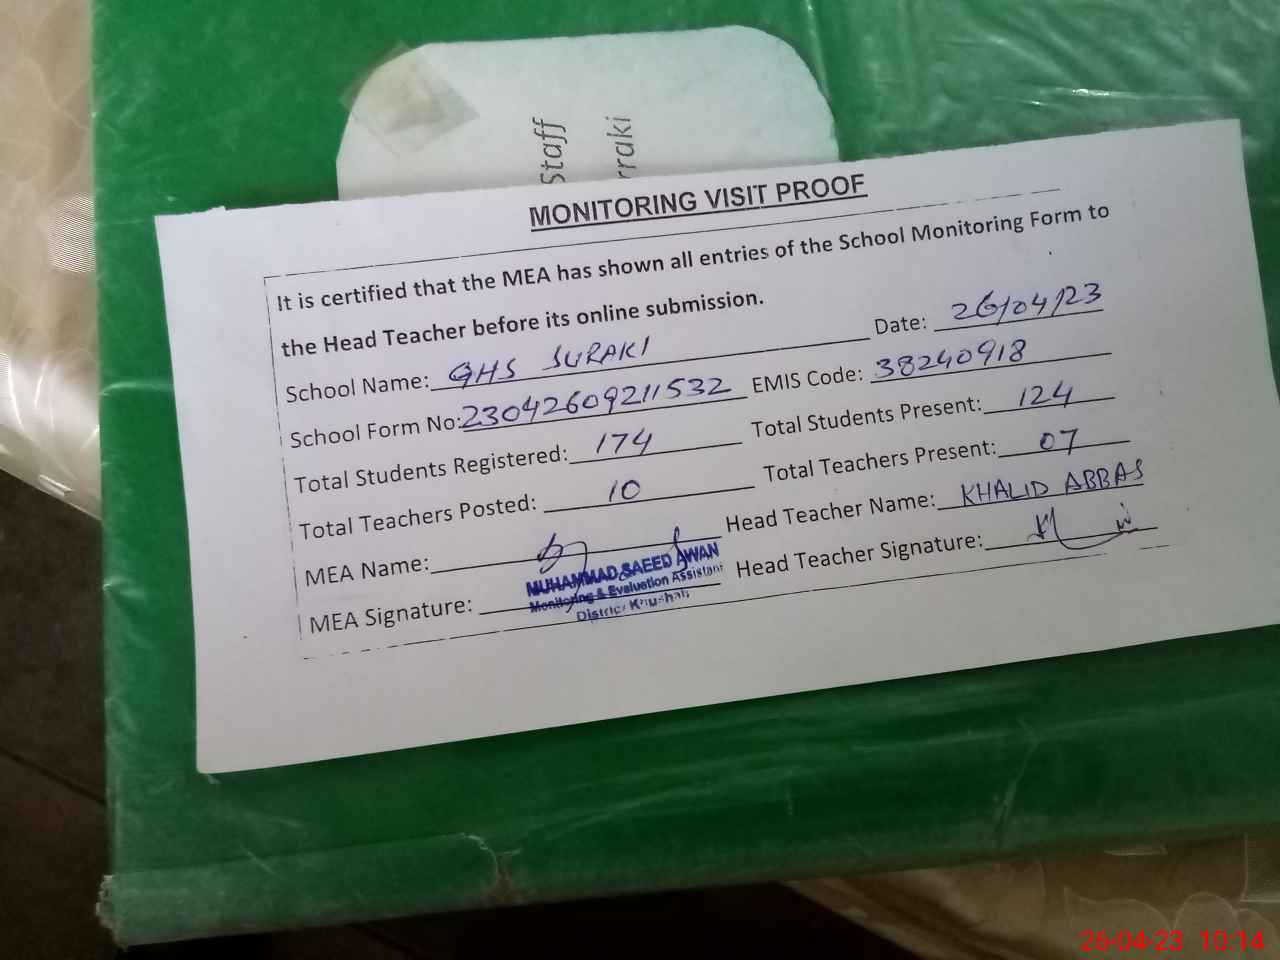 Staff
rraki
MONITORING VISIT PROOF
It is certified that the MEA has shown all entries of the School Monitoring Form to
the Head Teacher before its online submission.
School Name: GHS SURAKI Date: 26/04/23
School Form No: 23042609211532 EMIS Code: 38240918
Total Students Registered: 174 Total Students Present: 124
Total Teachers Posted: 10 Total Teachers Present: 07
MEA Name: Head Teacher Name: KHALID ABBAS
MEA Signature: Head Teacher Signature:
MUHAMMAD SAEED AWAN
Monitoring & Evaluation Assistant
District Khushab
26-04-23 10:14